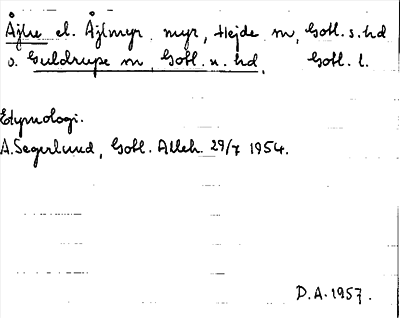 Åjlue el. Åjlmyr myr, Hejde sn, Gotl. s. hd
o. Guldrupe sn, Gotl. n. hd, Gotl. l.
Etymologi.
A. Segerlund, Gotl. Alleh. 29/7 1954.
D.A. 1957.